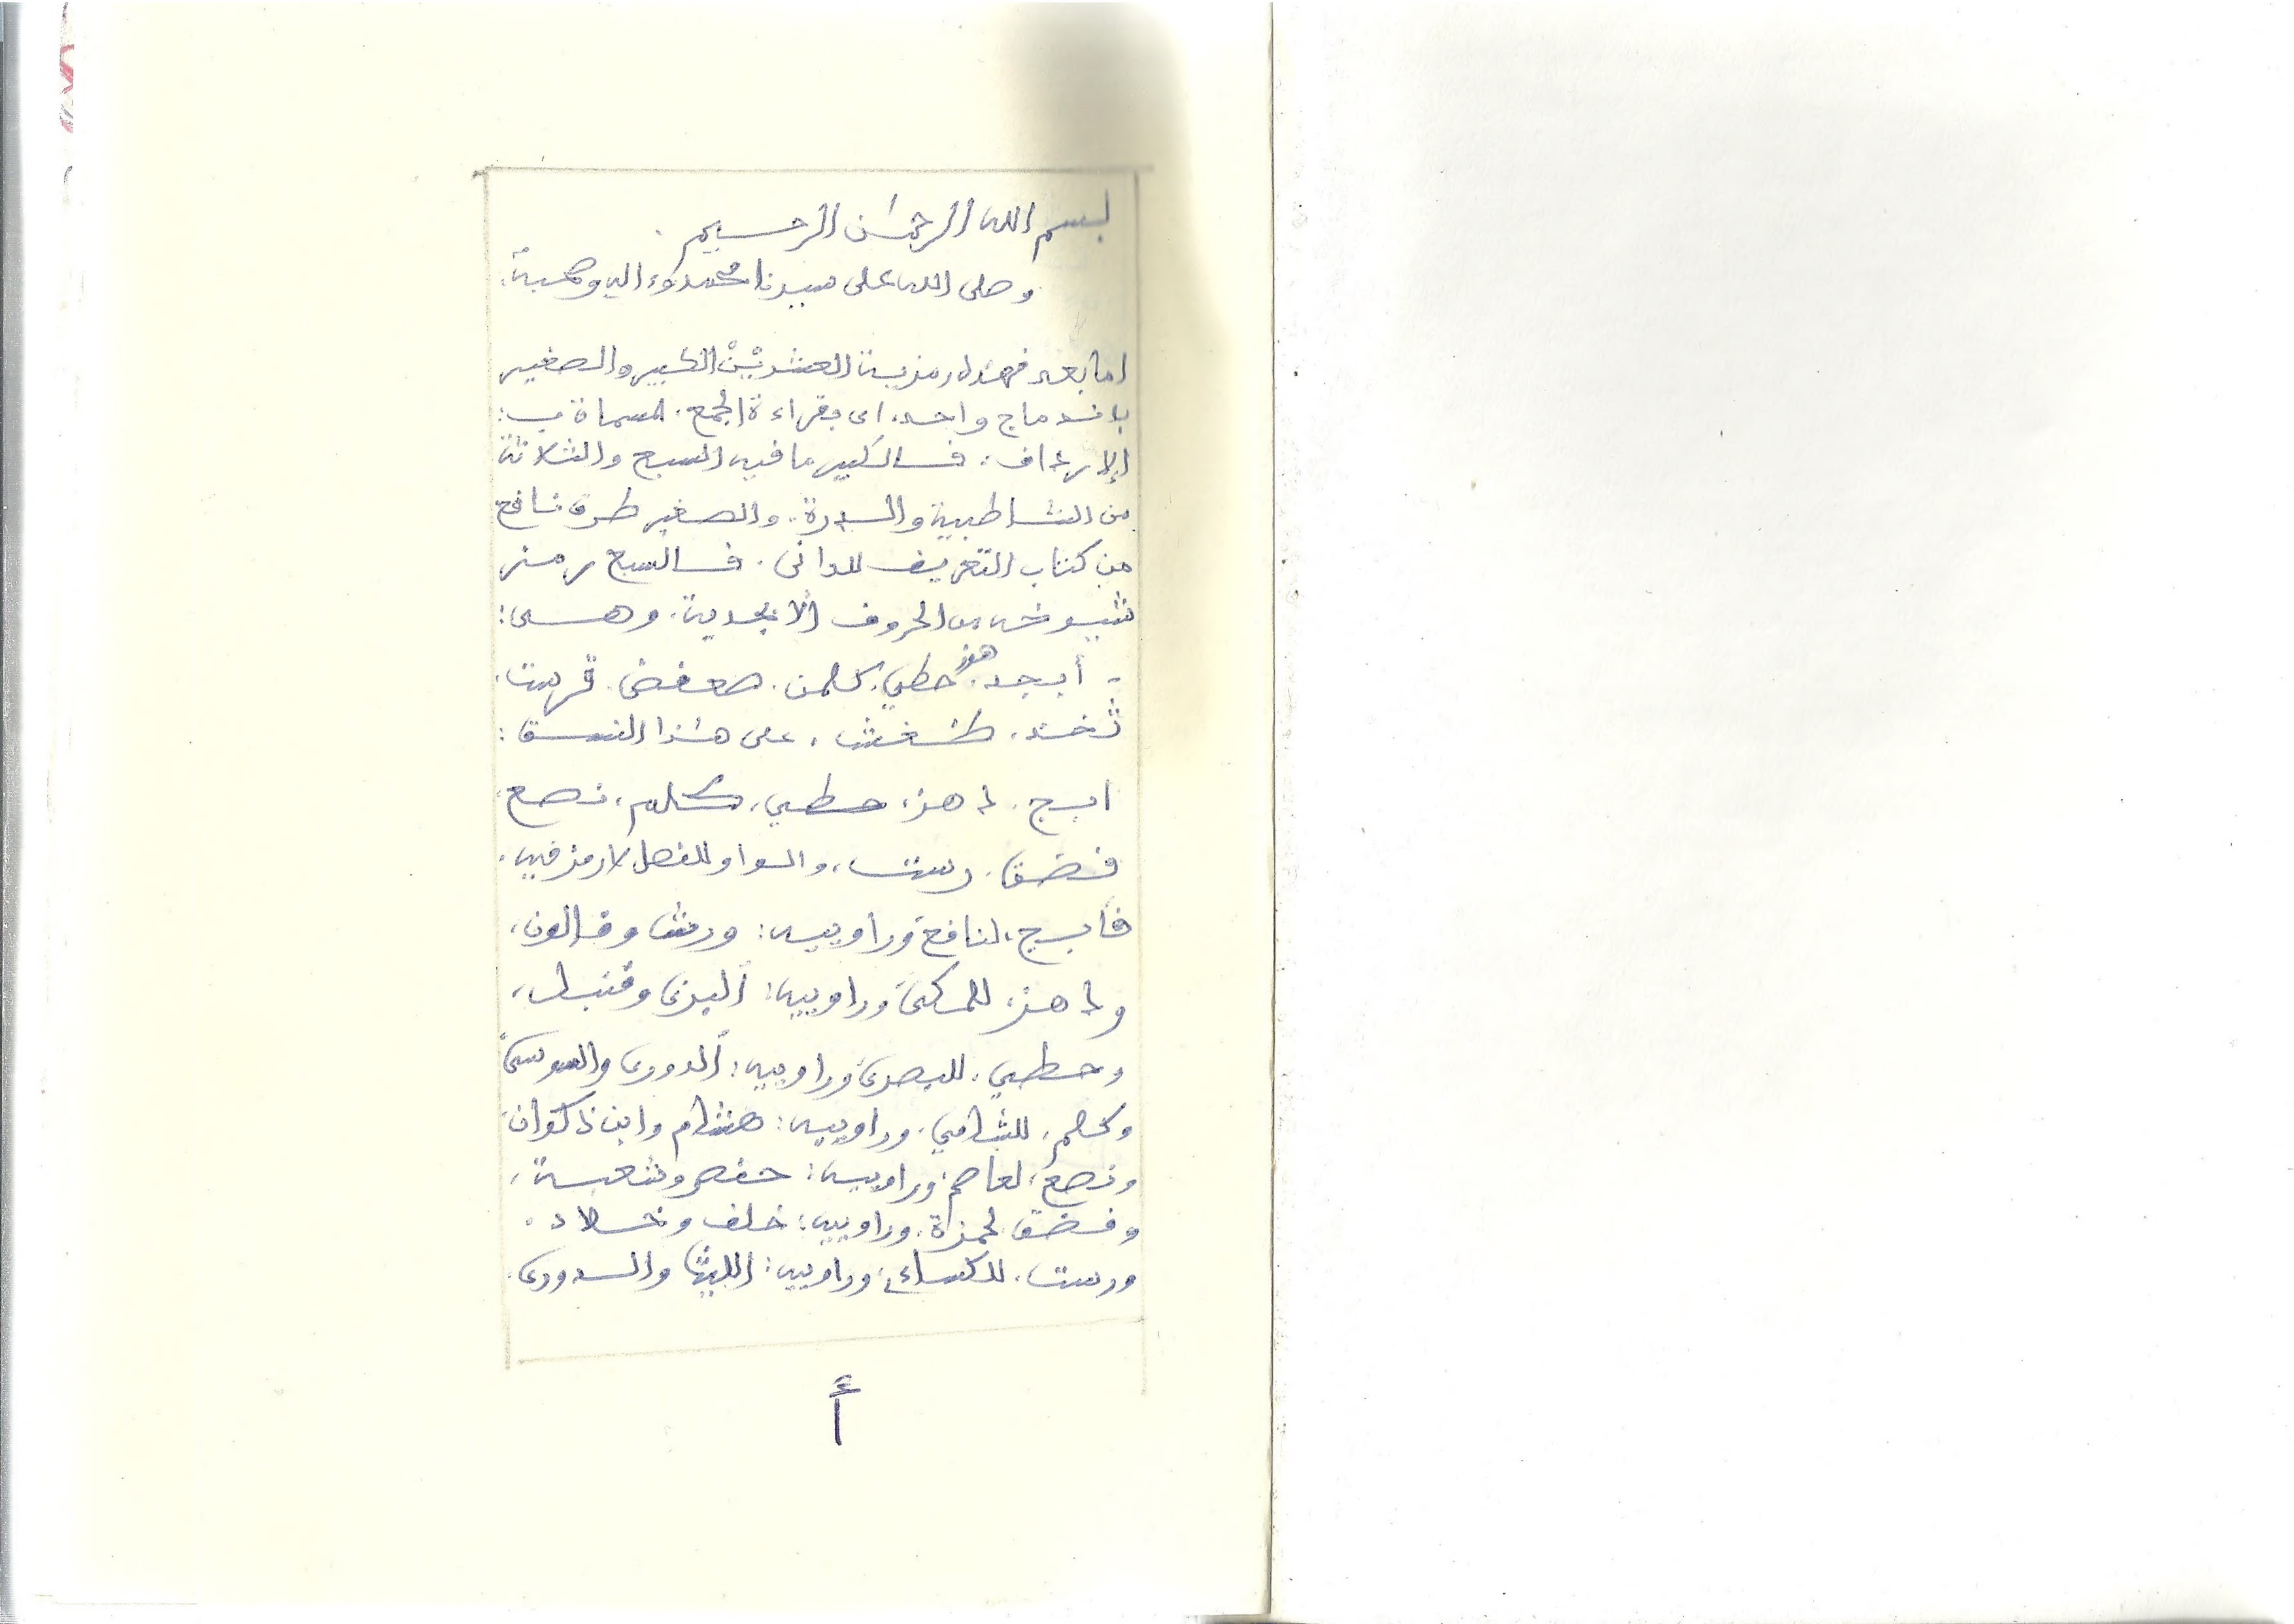 بسم الله الرحمٰن الرحيم.
وصلى الله على سيدنا محمد وءاله وصحبه.
اما بعد فهذه رمزية العشريْنْ الكبير والصغير
باندماج واحد، اى بقراءة الجمع. المسماة ب:
الإرداف: فالكبير ما فيه السبع والثلاثة
من الشاطبية والدرة. والصغير طرق نافع
من كتاب التعريف للدانى. فالسبع رمز
شيوخه من الحروف الأبجدية. وهى:
- أبجد. هوز حطي. كلمن. صعفض. قرست.
ثخذ. ظغش. على هٰذا النسق:
ابج. دهز، حطي، كلم، نصع،
فضق. رست، والواو للفصل لا رمز فيه.
فأبج، لنافع وراوييه: ورش وقالون،
ودهز، للمكى وراوييه: البزى وقنبل،
وحطي. للبصرى وراوييه: الدورى والسوسى
وكلم. للشامي. وراوييه: هشام وابن ذكوان
ونصع، لعاصم وراوييه: حفص وشعبة،
وفضق لحمزة. وراوييه: خلف وخلاد.
ورست. للكساءي وراوييه: الليث والدورى.
أ